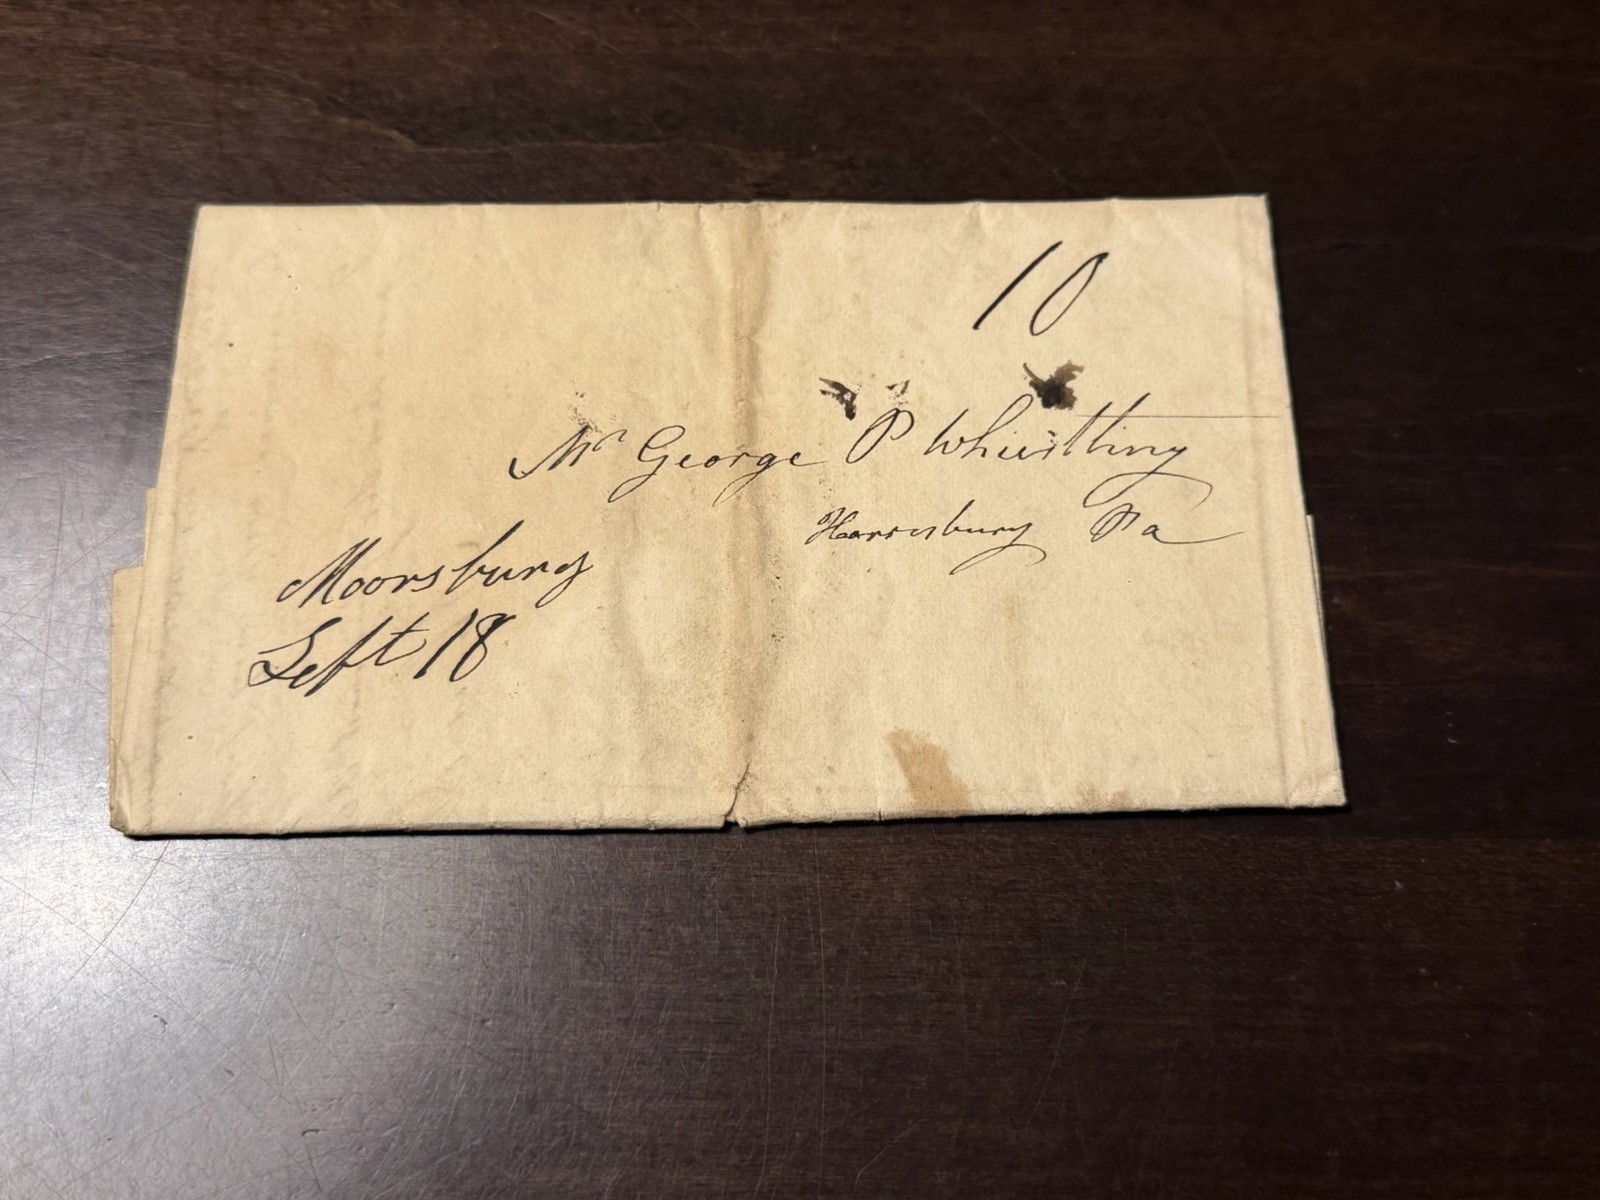 10
Mr George P Whistling
Harrisburg Pa
Moorsburg
Sept 18